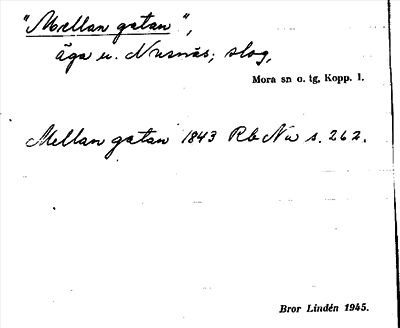 "Mellan gatan",
äga u. Nusnäs; skog,
Mora sn o. tg, Kopp. l.
Mellan gatan 1843 Rb Nu s. 262.
Bror Lindén 1945.